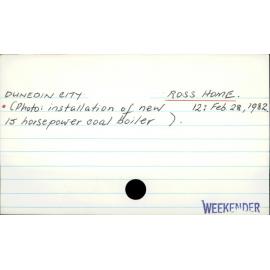 DUNEDIN CITY ROSS HOME.
• (Photo: installation of new 12: Feb 28, 1982
15 horsepower coal boiler ).
WEEKENDER